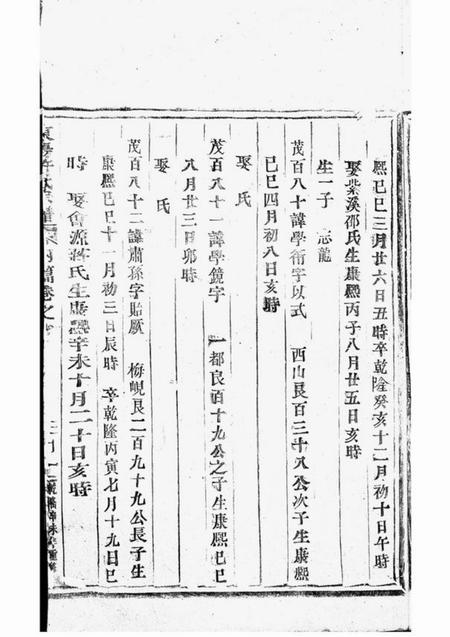 熙己巳三月廿六日丑時卒乾隆癸亥十二月初十日午時
娶紫溪邵氏生康熙丙子八月廿五日亥時
生一子 志龍
茂百八十諱學衙字以式 西山良百三十八公次子生康熙
己巳四月初八日亥時
娶氏
茂百八十一諱學鏡字 一都良百十九公之子生康熙己巳
八月廿三日卯時
娶氏
茂百八十二諱肅孫字貽厥 梅峴良二百九十九公長子生
康熙己巳十一月初三日辰時 卒乾隆丙寅七月十九日巳
時 娶會源蔣氏生康熙辛未十月二十日亥時